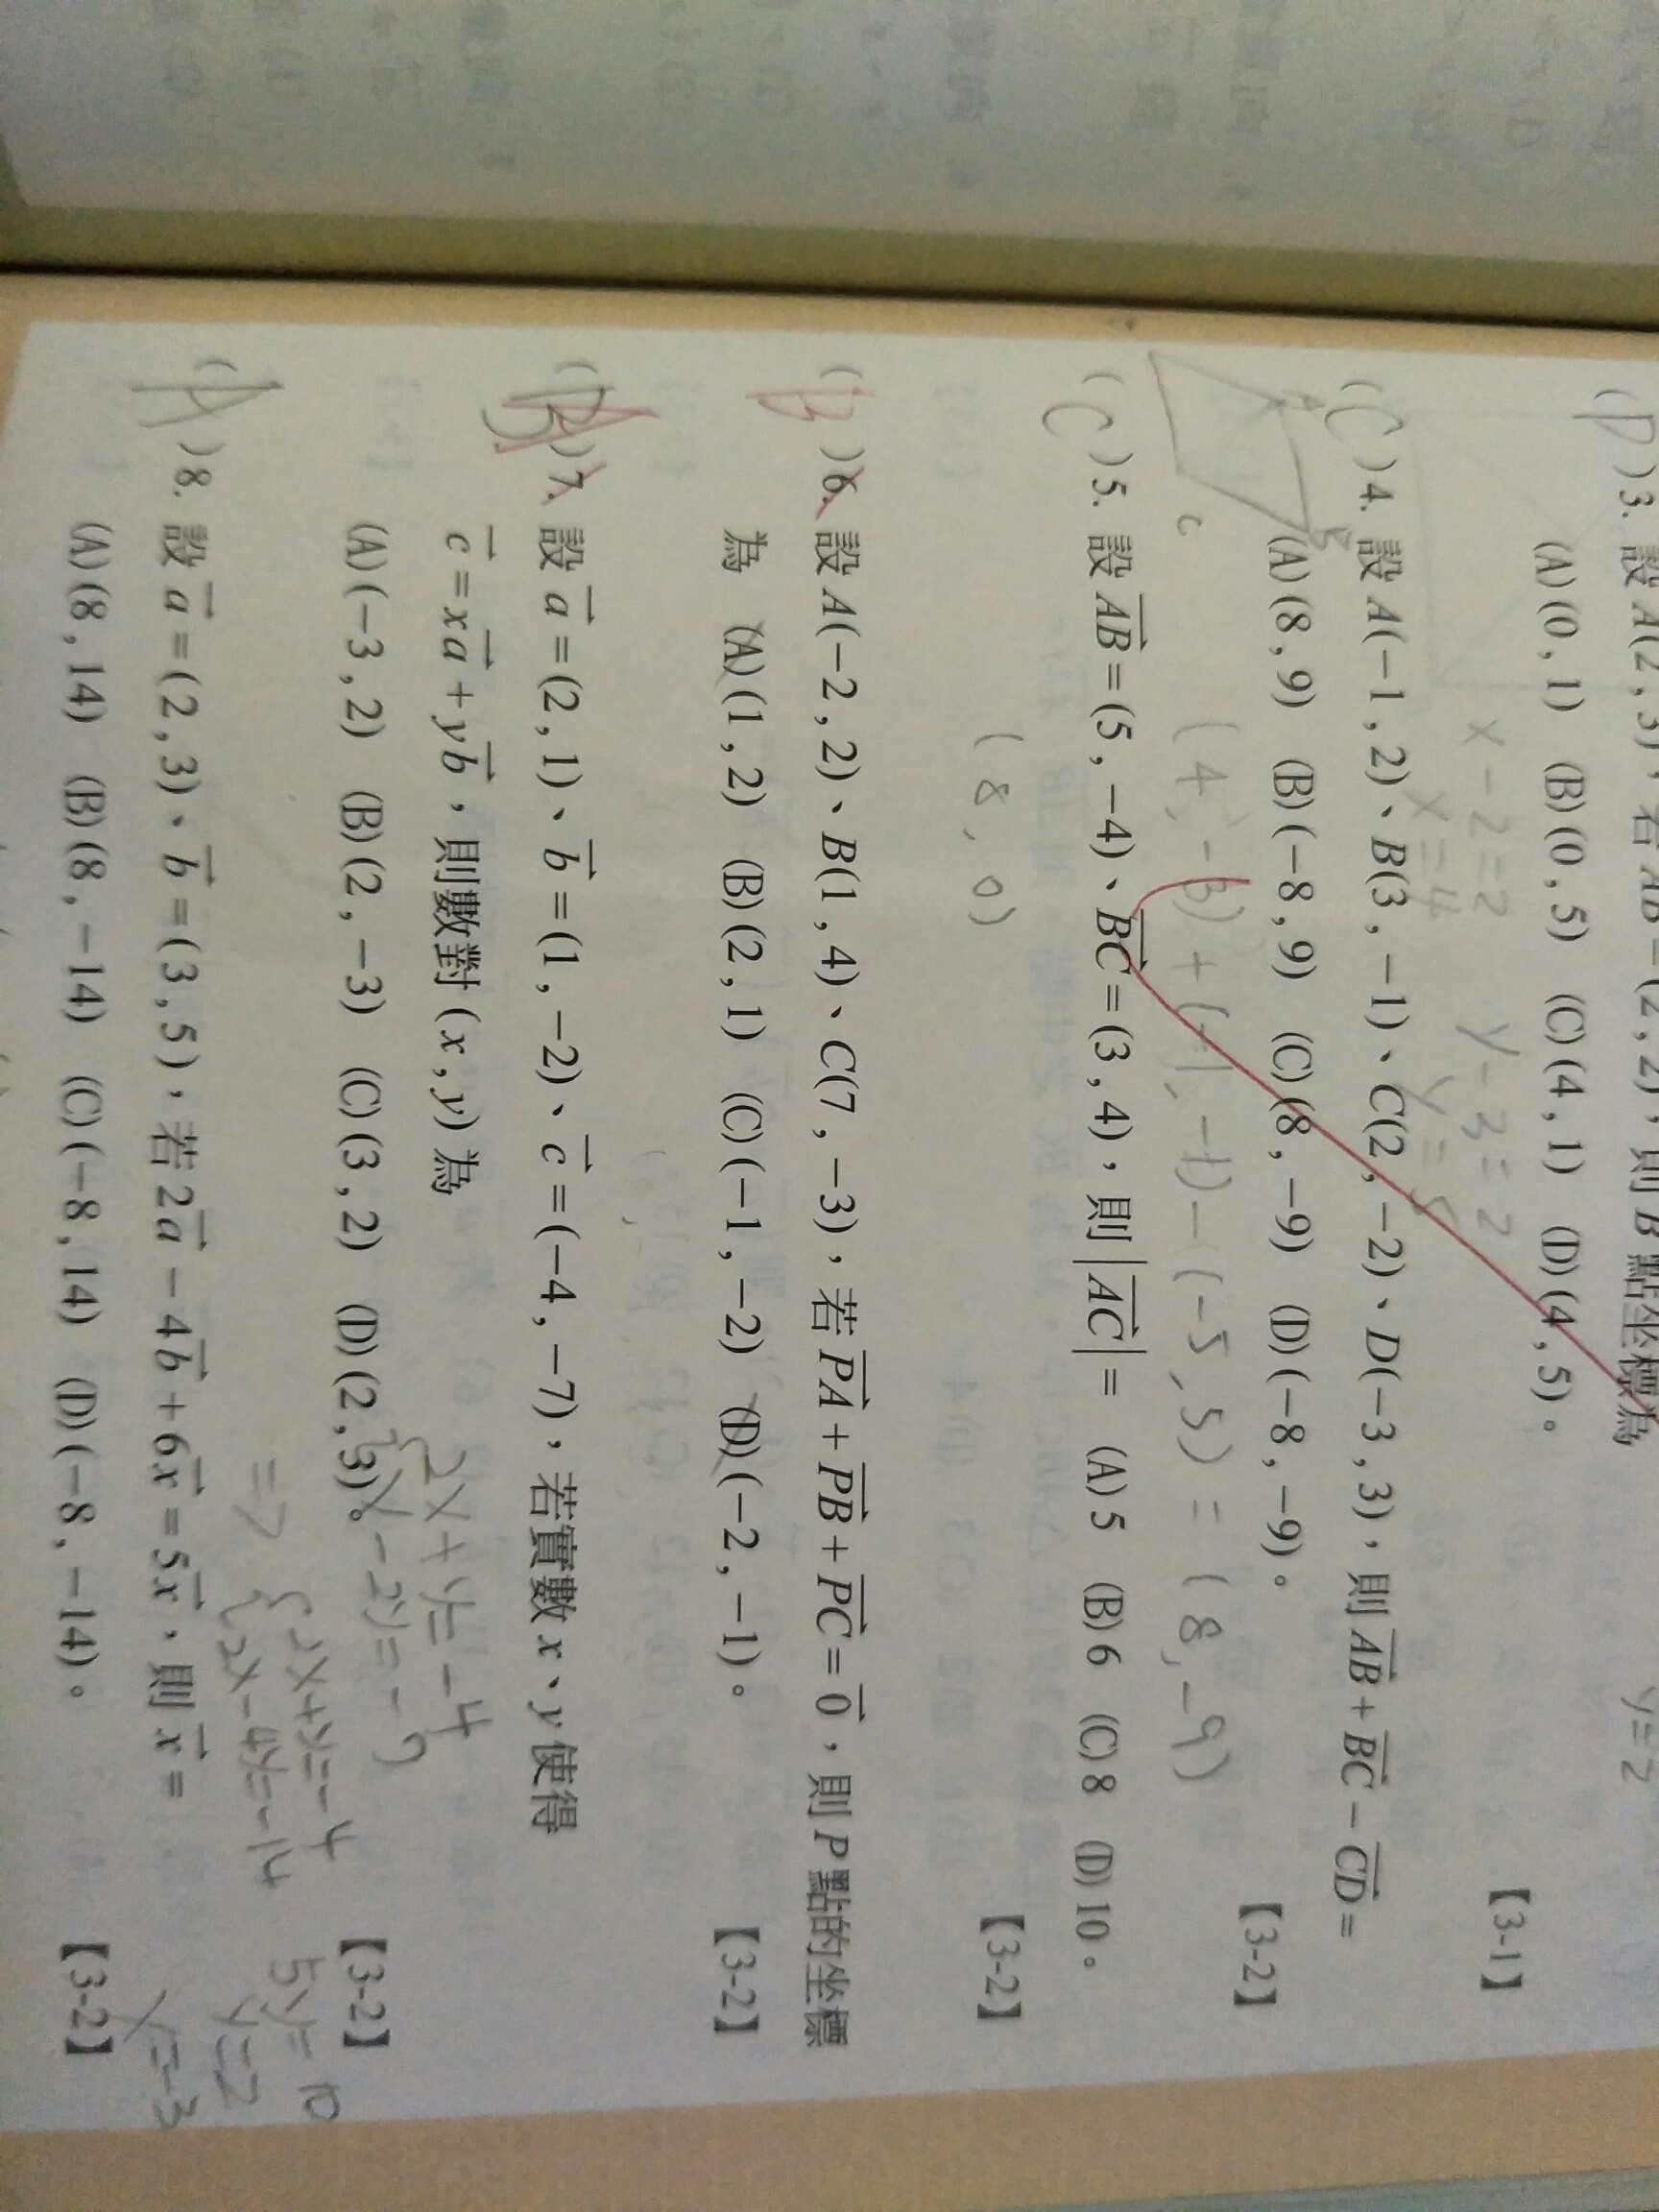 (D)3. 設 A(2,3),若 AB=(2,2),則 B 點坐標為
(A)(0,1) (B)(0,5) (C)(4,1) (D)(4,5)。 【3-1】
x-2=2 y-3=2
x=4 y=5
y=2
(C)4. 設 A(-1,2)、B(3,-1)、C(2,-2)、D(-3,3),則 AB+BC-CD=
(A)(8,9) (B)(-8,9) (C)(8,-9) (D)(-8,-9)。 【3-2】
(4,-3)+(-1,-1)-(-5,5)=(8,-9)
A B C
(C)5. 設 AB=(5,-4)、BC=(3,4),則 |AC|= (A)5 (B)6 (C)8 (D)10。
【3-2】
(8,0)
( )6. 設 A(-2,2)、B(1,4)、C(7,-3),若 PA+PB+PC=0,則 P 點的坐標
為 (A)(1,2) (B)(2,1) (C)(-1,-2) (D)(-2,-1)。 【3-2】
( )7. 設 a=(2,1)、b=(1,-2)、c=(-4,-7),若實數 x、y 使得
c=xa+yb,則數對 (x,y) 為
(A)(-3,2) (B)(2,-3) (C)(3,2) (D)(2,3)。 【3-2】
2x+y=-4
x-2y=-7
=>
2x+y=-4
2x-4y=-14
5y=10
y=2
x=-3
(A)8. 設 a=(2,3)、b=(3,5),若 2a-4b+6x=5x,則 x=
(A)(8,14) (B)(8,-14) (C)(-8,14) (D)(-8,-14)。 【3-2】